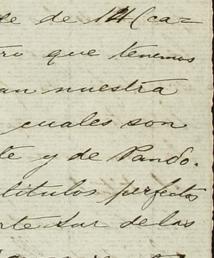 de 14 (ca=
que tenemos
an nuestra
cuales son
te y de Pando.
titulos perfectos
rte Sur de las